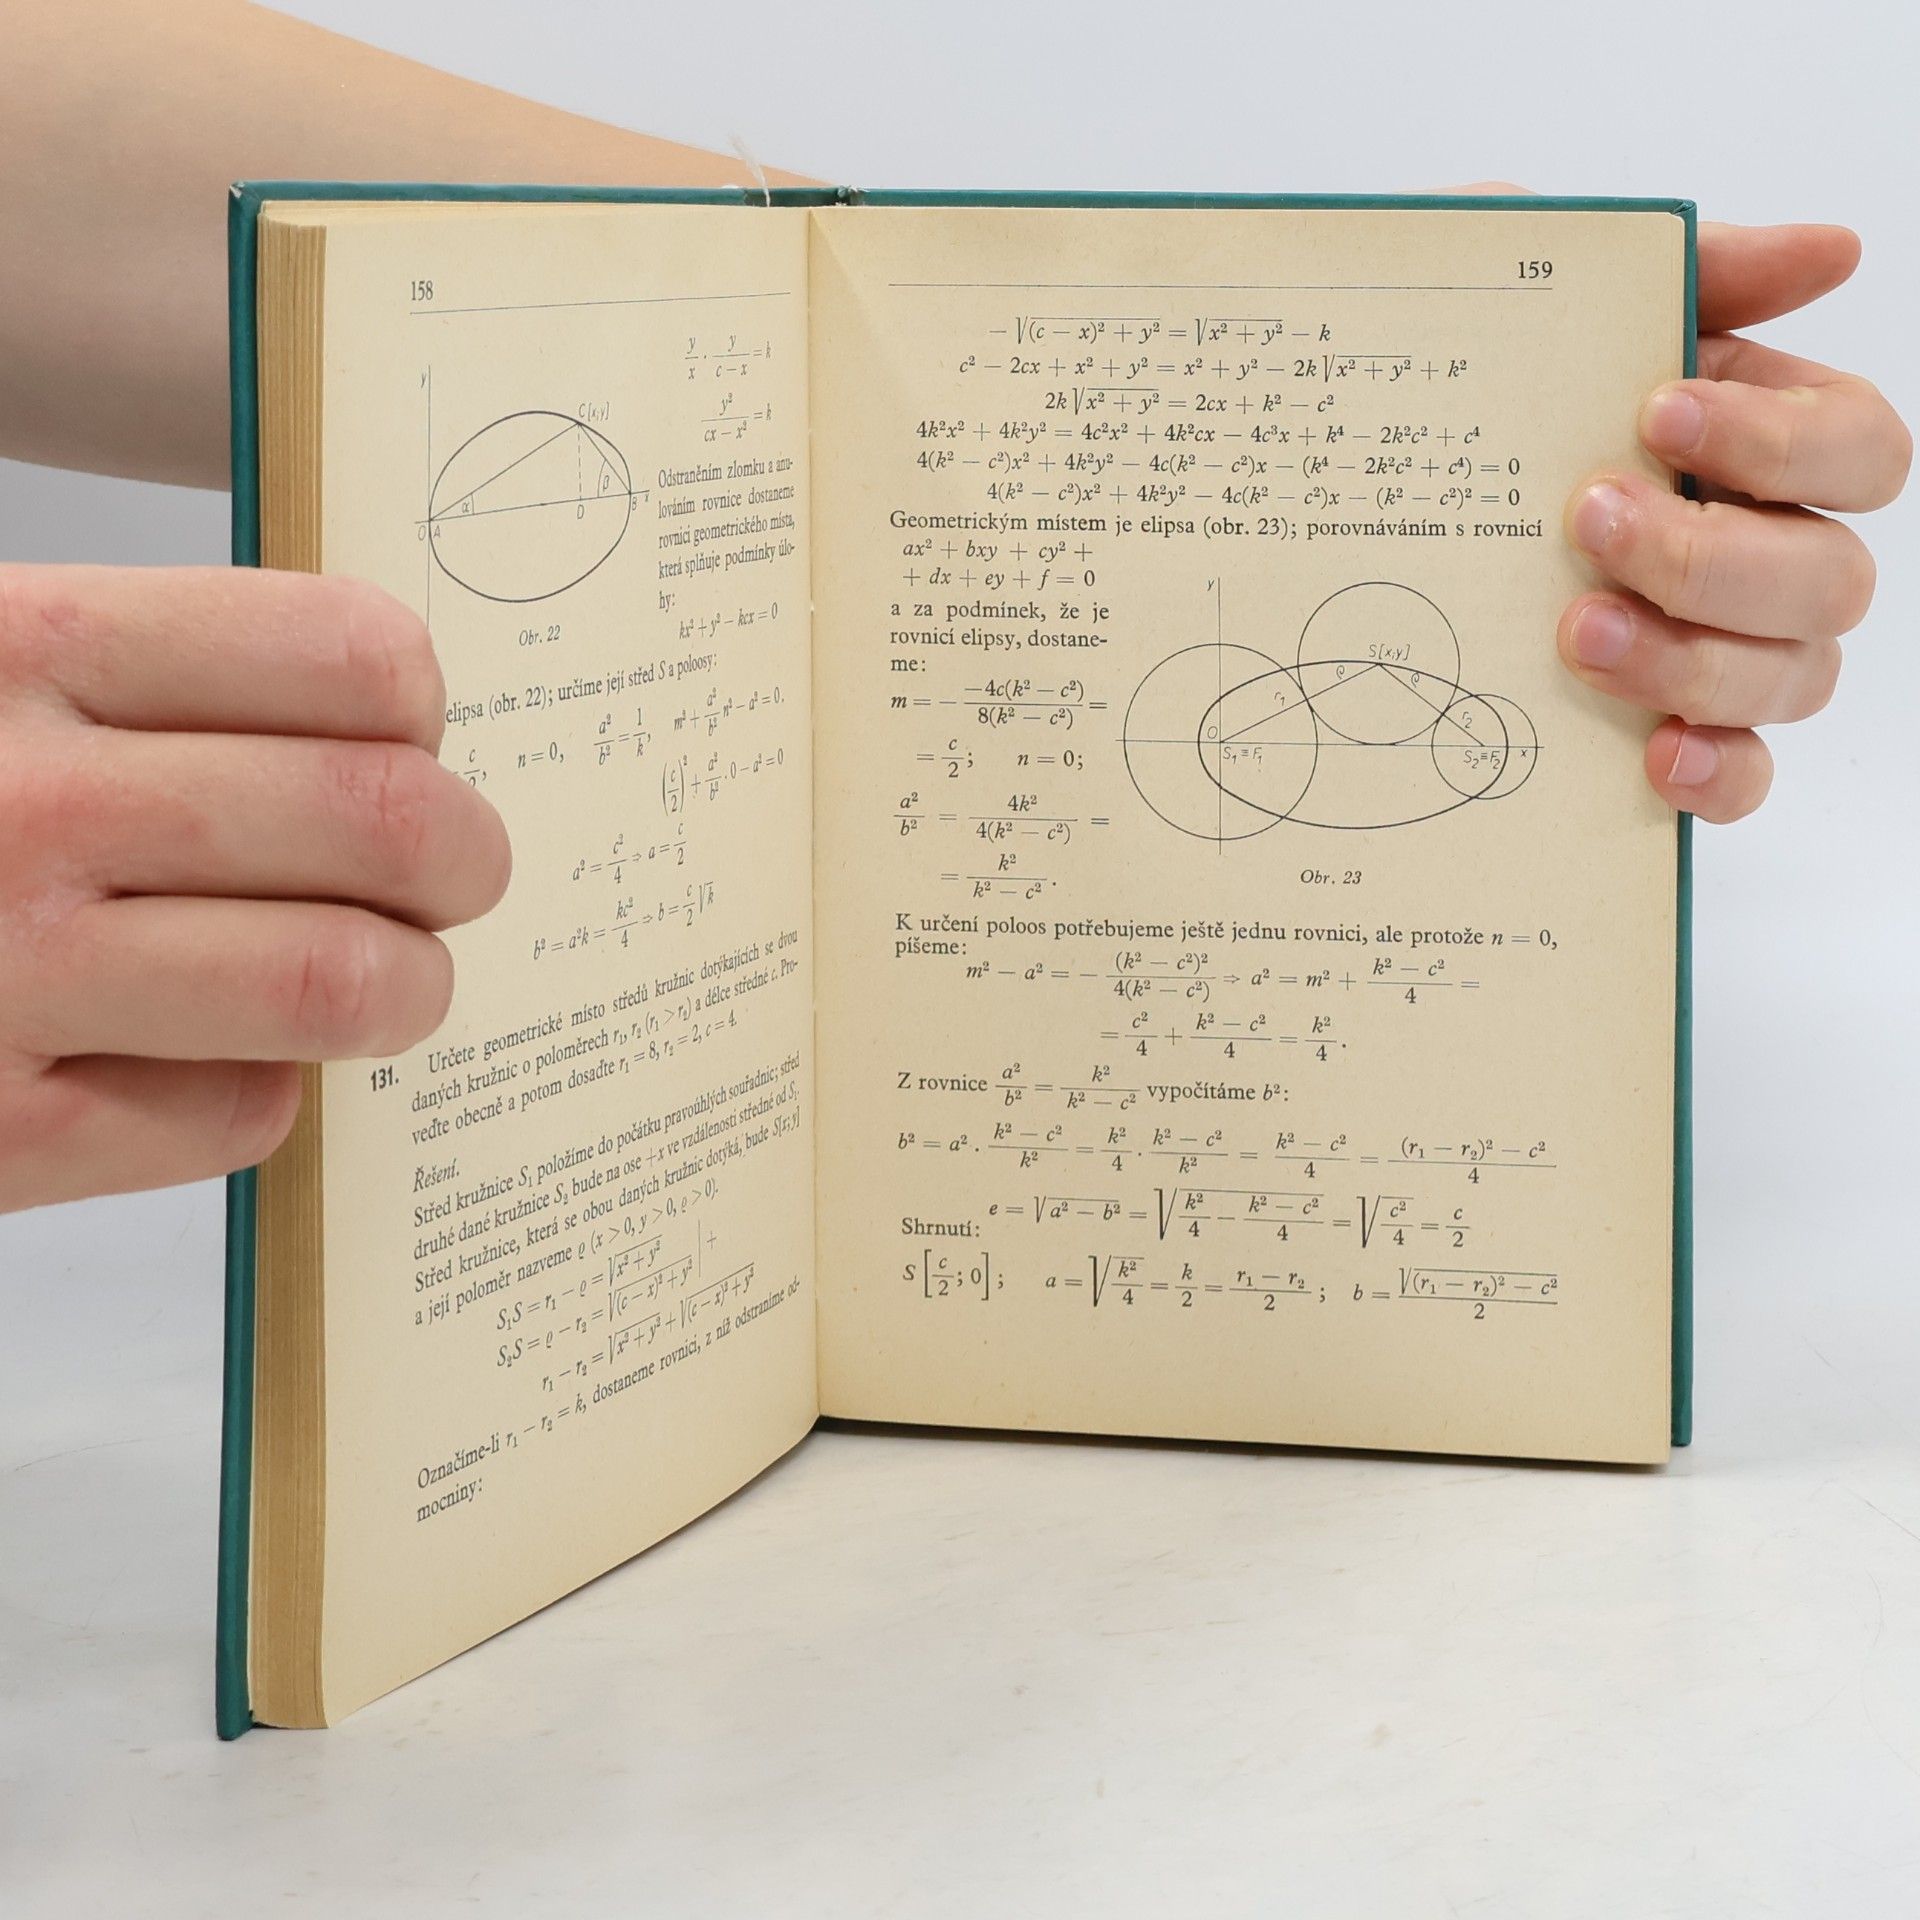 158
y/x · y/(c − x) = k
y²/(cx − x²) = k
y
C[x;y]
α
β
O
A
D
B
x
Obr. 22
Odstraněním zlomku a anu-
lováním rovnice dostaneme
rovnici geometrického místa,
která splňuje podmínky úlo-
hy:
kx² + y² − kcx = 0
elipsa (obr. 22); určíme její střed S a poloosy:
c/2, n = 0, a²/b² = 1/k, m² + a²/b² n² − a² = 0.
(c/2)² + a²/b² · 0 − a² = 0
a² = c²/4 ⇒ a = c/2
b² = a²k = kc²/4 ⇒ b = c/2 √k
131. Určete geometrické místo středů kružnic dotýkajících se dvou
daných kružnic o poloměrech r₁, r₂ (r₁ > r₂) a délce středné c. Pro-
veďte obecně a potom dosaďte r₁ = 8, r₂ = 2, c = 4.
Řešení.
Střed kružnice S₁ položíme do počátku pravoúhlých souřadnic; střed
druhé dané kružnice S₂ bude na ose +x ve vzdálenosti středné od S₁.
Střed kružnice, která se obou daných kružnic dotýká, bude S[x;y]
a její poloměr nazveme ϱ (x > 0, y > 0, ϱ > 0).
S₁S = r₁ − ϱ = √(x² + y²)
S₂S = ϱ − r₂ = √((c − x)² + y²) | +
r₁ − r₂ = √(x² + y²) + √((c − x)² + y²)
Označíme-li r₁ − r₂ = k, dostaneme rovnici, z níž odstraníme od-
mocniny:
159
− √((c − x)² + y²) = √(x² + y²) − k
c² − 2cx + x² + y² = x² + y² − 2k √(x² + y²) + k²
2k √(x² + y²) = 2cx + k² − c²
4k²x² + 4k²y² = 4c²x² + 4k²cx − 4c³x + k⁴ − 2k²c² + c⁴
4(k² − c²)x² + 4k²y² − 4c(k² − c²)x − (k⁴ − 2k²c² + c⁴) = 0
4(k² − c²)x² + 4k²y² − 4c(k² − c²)x − (k² − c²)² = 0
Geometrickým místem je elipsa (obr. 23); porovnáváním s rovnicí
ax² + bxy + cy² +
+ dx + ey + f = 0
a za podmínek, že je
rovnicí elipsy, dostane-
me:
m = − −4c(k² − c²)/8(k² − c²) =
= c/2; n = 0;
a²/b² = 4k²/4(k² − c²) =
= k²/(k² − c²).
y
S[x;y]
ϱ
ϱ
r₁
r₂
O
S₁ ≡ F₁
S₂ ≡ F₂
x
Obr. 23
K určení poloos potřebujeme ještě jednu rovnici, ale protože n = 0,
píšeme:
m² − a² = − (k² − c²)²/4(k² − c²) ⇒ a² = m² + (k² − c²)/4 =
= c²/4 + (k² − c²)/4 = k²/4.
Z rovnice a²/b² = k²/(k² − c²) vypočítáme b²:
b² = a² · (k² − c²)/k² = k²/4 · (k² − c²)/k² = (k² − c²)/4 = ((r₁ − r₂)² − c²)/4
e = √(a² − b²) = √(k²/4 − (k² − c²)/4) = √(c²/4) = c/2
Shrnutí:
S [c/2; 0]; a = √(k²/4) = k/2 = (r₁ − r₂)/2; b = √((r₁ − r₂)² − c²)/2